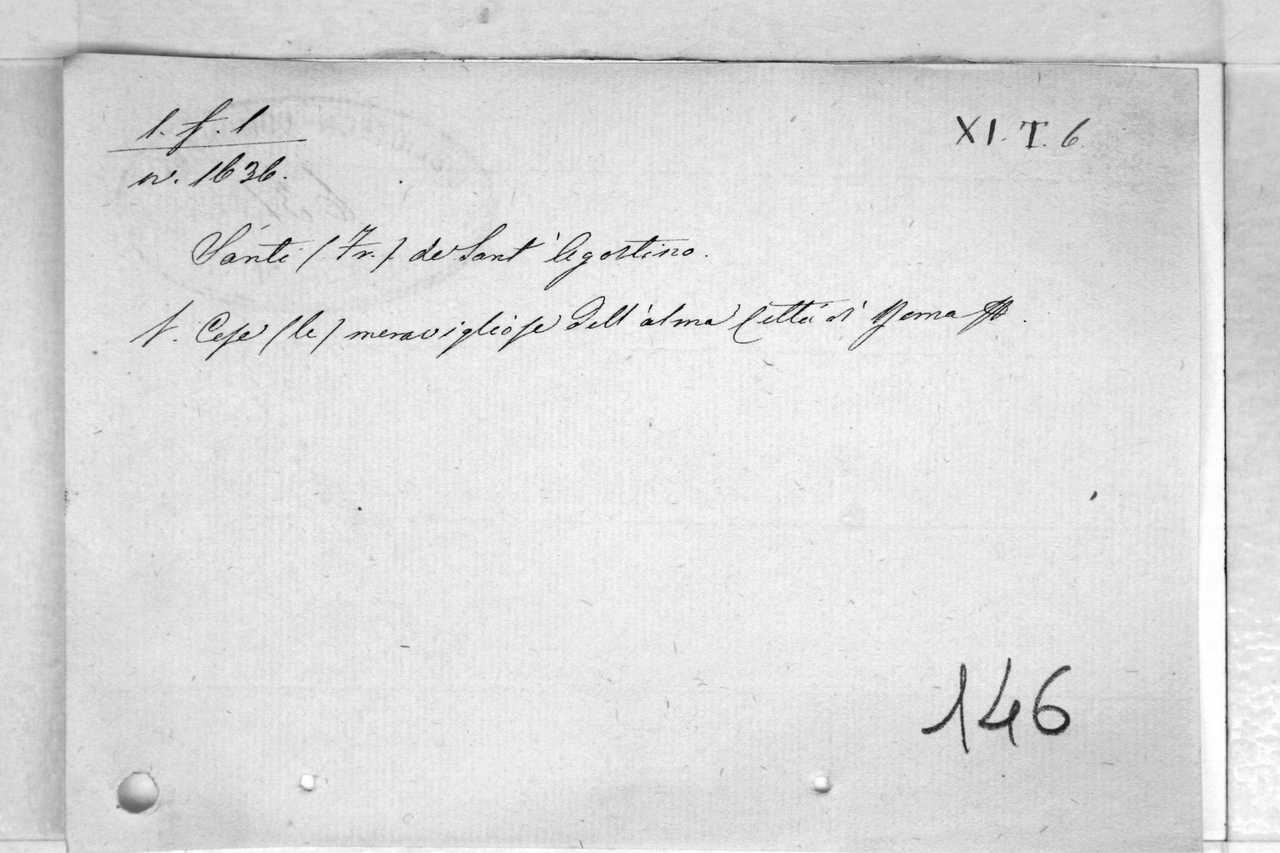 1. f. 1
XI. T. 6
n. 1636.
Santi (Fr.) de Sant' Agostino.
V. Cose (le) meravigliose dell'alma Città di Roma
146